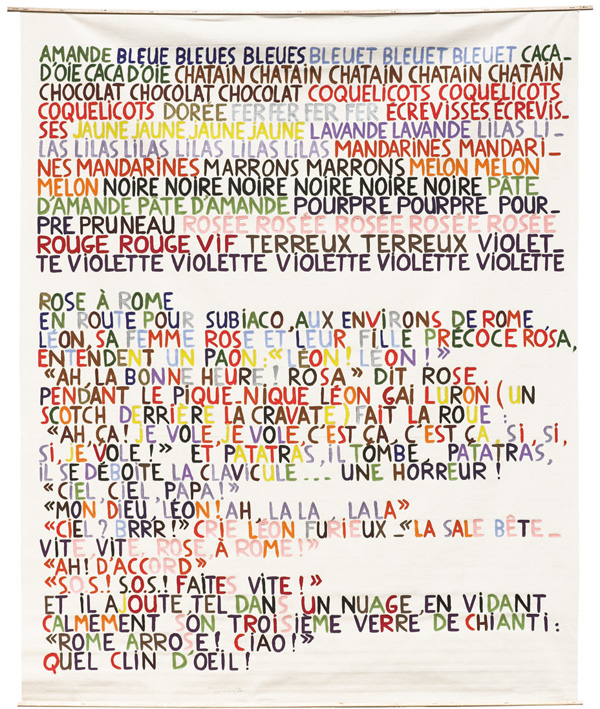 AMANDE BLEUE BLEUES BLEUES BLEUET BLEUET BLEUET CACA_
D'OIE CACA D'OIE CHATAIN CHATAIN CHATAIN CHATAIN CHATAIN
CHOCOLAT CHOCOLAT CHOCOLAT COQUELICOTS COQUELICOTS
COQUELICOTS DORÉE FER FER FER FER ÉCREVISSES, ÉCREVIS_
SES JAUNE JAUNE JAUNE JAUNE LAVANDE LAVANDE LILAS LI_
LAS LILAS LILAS LILAS LILAS LILAS MANDARINES MANDARI_
NES MANDARINES MARRONS MARRONS MELON MELON
MELON NOIRE NOIRE NOIRE NOIRE NOIRE NOIRE PÂTE
D'AMANDE PÂTE D'AMANDE POURPRE POURPRE POUR_
PRE PRUNEAU ROSÉE ROSÉE ROSÉE ROSÉE ROSÉE
ROUGE ROUGE VIF TERREUX TERREUX VIOLET_
TE VIOLETTE VIOLETTE VIOLETTE VIOLETTE VIOLETTE
ROSE À ROME
EN ROUTE POUR SUBIACO, AUX ENVIRONS DE ROME,
LÉON, SA FEMME ROSE ET LEUR FILLE PRÉCOCE ROSA,
ENTENDENT UN PAON. «LÉON! LÉON!»
«AH, LA BONNE HEURE! ROSA» DIT ROSE.
PENDANT LE PIQUE-NIQUE LÉON GAI LURON (UN
SCOTCH DERRIÈRE LA CRAVATE) FAIT LA ROUE :
«AH, ÇA! JE VOLE, JE VOLE, C'EST ÇA, C'EST ÇA, SI, SI,
SI, JE VOLE!» ET PATATRAS, IL TOMBE, PATATRAS,
IL SE DÉBOITE LA CLAVICULE... UNE HORREUR!
«CIEL, CIEL, PAPA!»
«MON DIEU, LÉON! AH, LA LA, LA LA»
«CIEL? BRRR!» CRIE LÉON FURIEUX _«LA SALE BÊTE_
VITE, VITE, ROSE, À ROME!»
«AH! D'ACCORD»
«S.O.S.! S.O.S.! FAITES VITE!»
ET IL AJOUTE TEL DANS UN NUAGE, EN VIDANT
CALMEMENT SON TROISIÈME VERRE DE CHIANTI :
«ROME ARROSE! CIAO!»
QUEL CLIN D'OEIL!